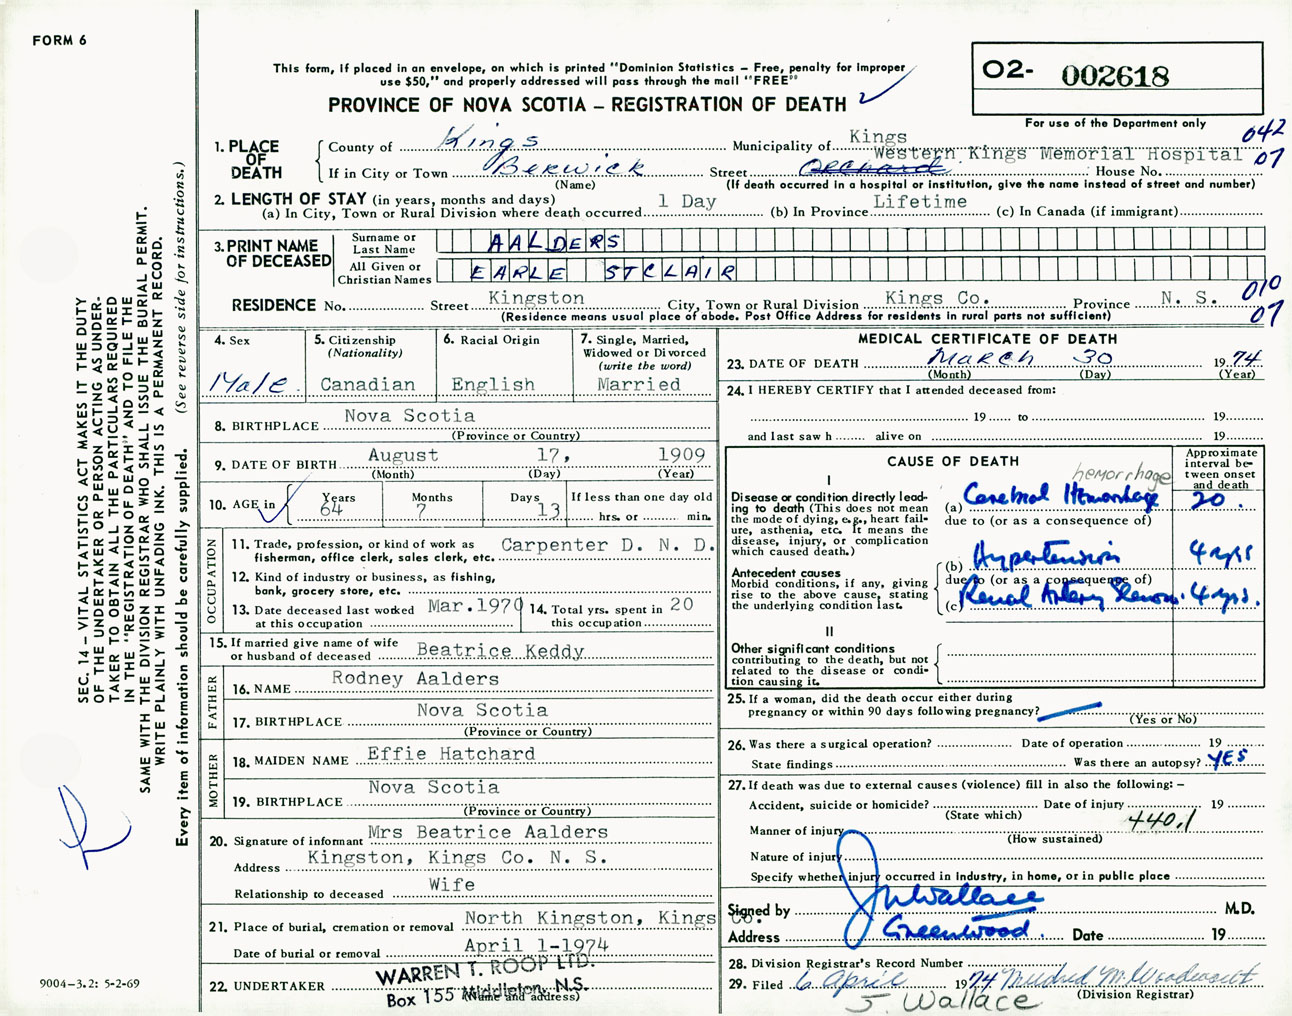 FORM 6
This form, if placed in an envelope, on which is printed "Dominion Statistics – Free, penalty for improper
use $50," and properly addressed will pass through the mail "FREE"
PROVINCE OF NOVA SCOTIA – REGISTRATION OF DEATH
02- 002618
For use of the Department only
1. PLACE OF DEATH
County of Kings Municipality of Kings 042
If in City or Town Berwick Street Orchard Western Kings Memorial Hospital House No. 07
(Name) (If death occurred in a hospital or institution, give the name instead of street and number)
2. LENGTH OF STAY (in years, months and days)
(a) In City, Town or Rural Division where death occurred 1 Day (b) In Province Lifetime (c) In Canada (if immigrant)
3. PRINT NAME OF DECEASED
Surname or Last Name AALDERS
All Given or Christian Names EARLE STCLAIR
RESIDENCE No. Street Kingston City, Town or Rural Division Kings Co. Province N. S. 010
(Residence means usual place of abode. Post Office Address for residents in rural parts not sufficient) 07
4. Sex Male
5. Citizenship (Nationality) Canadian
6. Racial Origin English
7. Single, Married, Widowed or Divorced (write the word) Married
8. BIRTHPLACE Nova Scotia
(Province or Country)
9. DATE OF BIRTH August 17, 1909
(Month) (Day) (Year)
10. AGE in Years 64 Months 7 Days 13 If less than one day old
hrs. or min.
OCCUPATION
11. Trade, profession, or kind of work as fisherman, office clerk, sales clerk, etc. Carpenter D. N. D.
12. Kind of industry or business, as fishing, bank, grocery store, etc.
13. Date deceased last worked at this occupation Mar.1970
14. Total yrs. spent in this occupation 20
15. If married give name of wife or husband of deceased Beatrice Keddy
FATHER
16. NAME Rodney Aalders
17. BIRTHPLACE Nova Scotia
(Province or Country)
MOTHER
18. MAIDEN NAME Effie Hatchard
19. BIRTHPLACE Nova Scotia
(Province or Country)
20. Signature of informant Mrs Beatrice Aalders
Address Kingston, Kings Co. N. S.
Relationship to deceased Wife
21. Place of burial, cremation or removal North Kingston, Kings Co.
Date of burial or removal April 1-1974
22. UNDERTAKER WARREN T. ROOP LTD.
Box 155 Middleton, N.S.
(Name and address)
MEDICAL CERTIFICATE OF DEATH
23. DATE OF DEATH March 30 1974
(Month) (Day) (Year)
24. I HEREBY CERTIFY that I attended deceased from:
19 to 19
and last saw h alive on 19
CAUSE OF DEATH
Approximate interval between onset and death
I
Disease or condition directly leading to death (This does not mean the mode of dying, e.g., heart failure, asthenia, etc. It means the disease, injury, or complication which caused death.)
hemorrhage
(a) Cerebral Hemorrhage 20.
due to (or as a consequence of)
Antecedent causes
Morbid conditions, if any, giving rise to the above cause, stating the underlying condition last.
(b) Hypertension 4 yrs
due to (or as a consequence of)
(c) Renal Artery Stenosis. 4 yrs.
II
Other significant conditions
contributing to the death, but not related to the disease or condition causing it.
25. If a woman, did the death occur either during
pregnancy or within 90 days following pregnancy?
(Yes or No)
26. Was there a surgical operation? Date of operation 19
State findings Was there an autopsy? YES
27. If death was due to external causes (violence) fill in also the following: –
Accident, suicide or homicide? Date of injury 19
(State which)
Manner of injury 440.1
(How sustained)
Nature of injury
Specify whether injury occurred in industry, in home, or in public place
Signed by J Wallace M.D.
Address Greenwood. Date 19
28. Division Registrar's Record Number
29. Filed 6 April 1974 Mildred M.
(Division Registrar)
J. Wallace
SEC. 14 – VITAL STATISTICS ACT MAKES IT THE DUTY
OF THE UNDERTAKER OR PERSON ACTING AS UNDER-
TAKER TO OBTAIN ALL THE PARTICULARS REQUIRED
IN THE "REGISTRATION OF DEATH" AND TO FILE THE
SAME WITH THE DIVISION REGISTRAR WHO SHALL ISSUE THE BURIAL PERMIT.
WRITE PLAINLY WITH UNFADING INK. THIS IS A PERMANENT RECORD.
Every item of information should be carefully supplied. (See reverse side for instructions.)
9004-3.2: 5-2-69